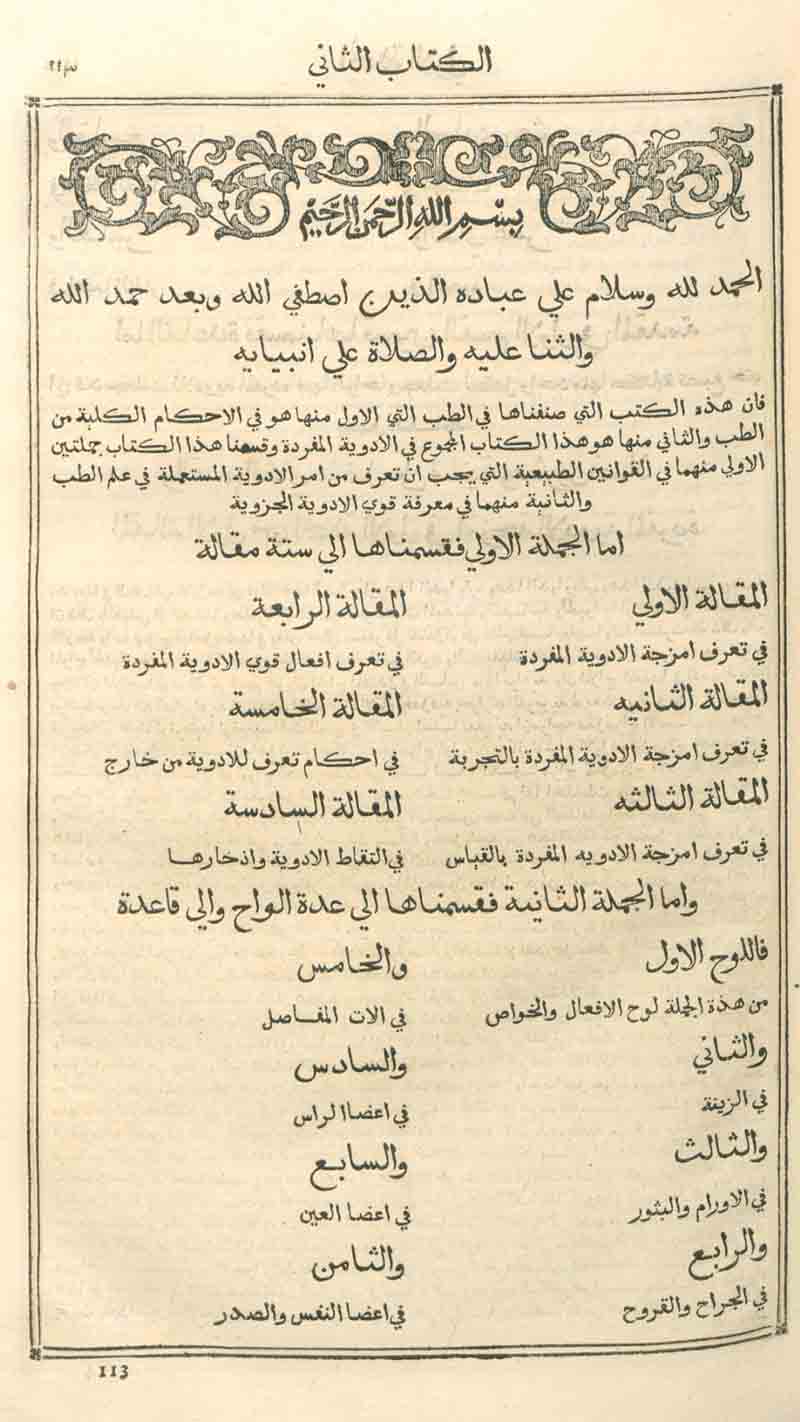 الكتاب الثاني
بسم الله الرحمن الرحيم
الحمد لله وسلام علي عباده الذين اصطفي الله وبعد حمد الله
والثنا عليه والصلاة علي انبيايه
فان هذه الكتب التي صنفناها في الطب التي الاول منها هو في الاحكام الكلية من
الطب والثاني منها هو هذا الكتاب المجموع في الادوية المفردة وقسمنا هذا الكتاب جملتين
الاولي منهما في القوانين الطبيعية التي يجب ان تعرف من امر الادوية المستعملة في علم الطب
والثانية منهما في معرفة قوي الادوية الجزوية
اما الجملة الاولي فقسمناها الي ستة مقالة
المقالة الاولي
في تعرف امزجة الادوية المفردة
المقالة الثانيه
في تعرف امزجة الادوية المفردة بالتجربة
المقالة الثالثه
في تعرف امزجة الادويه المفردة بالقياس
المقالة الرابعة
في تعرف افعال قوي الادوية المفردة
المقالة الخامسة
في احكام تعرف للادوية من خارج
المقالة السادسة
في التقاط الادوية واذخارها
واما الجملة الثانية فقسمناها الي عدة الواح والي قاعدة
فاللوح الاول
من هذة الجملة لوح الافعال والخواص
والثاني
في الزينة
والثالث
في الاورام والبثور
والرابع
في الجراح والقروح
والخامس
في الات المفاصل
والسادس
في اعضا الراس
والسابع
في اعضا العين
والثامن
في اعضا النفس والصدر
113